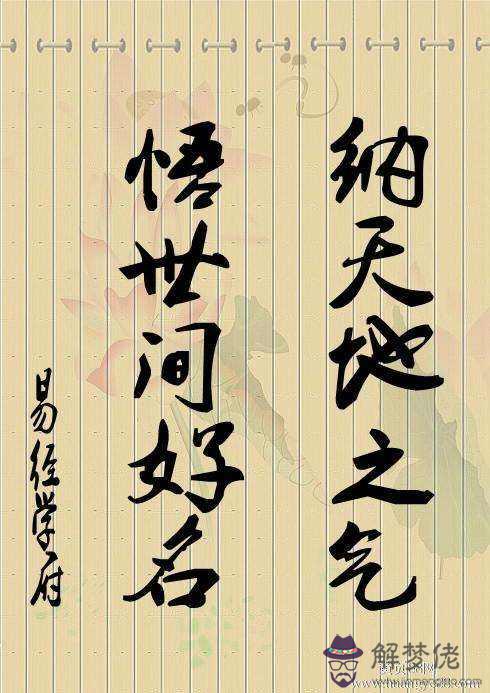 纳天地之气
悟世间好名
易经学府
解梦佬